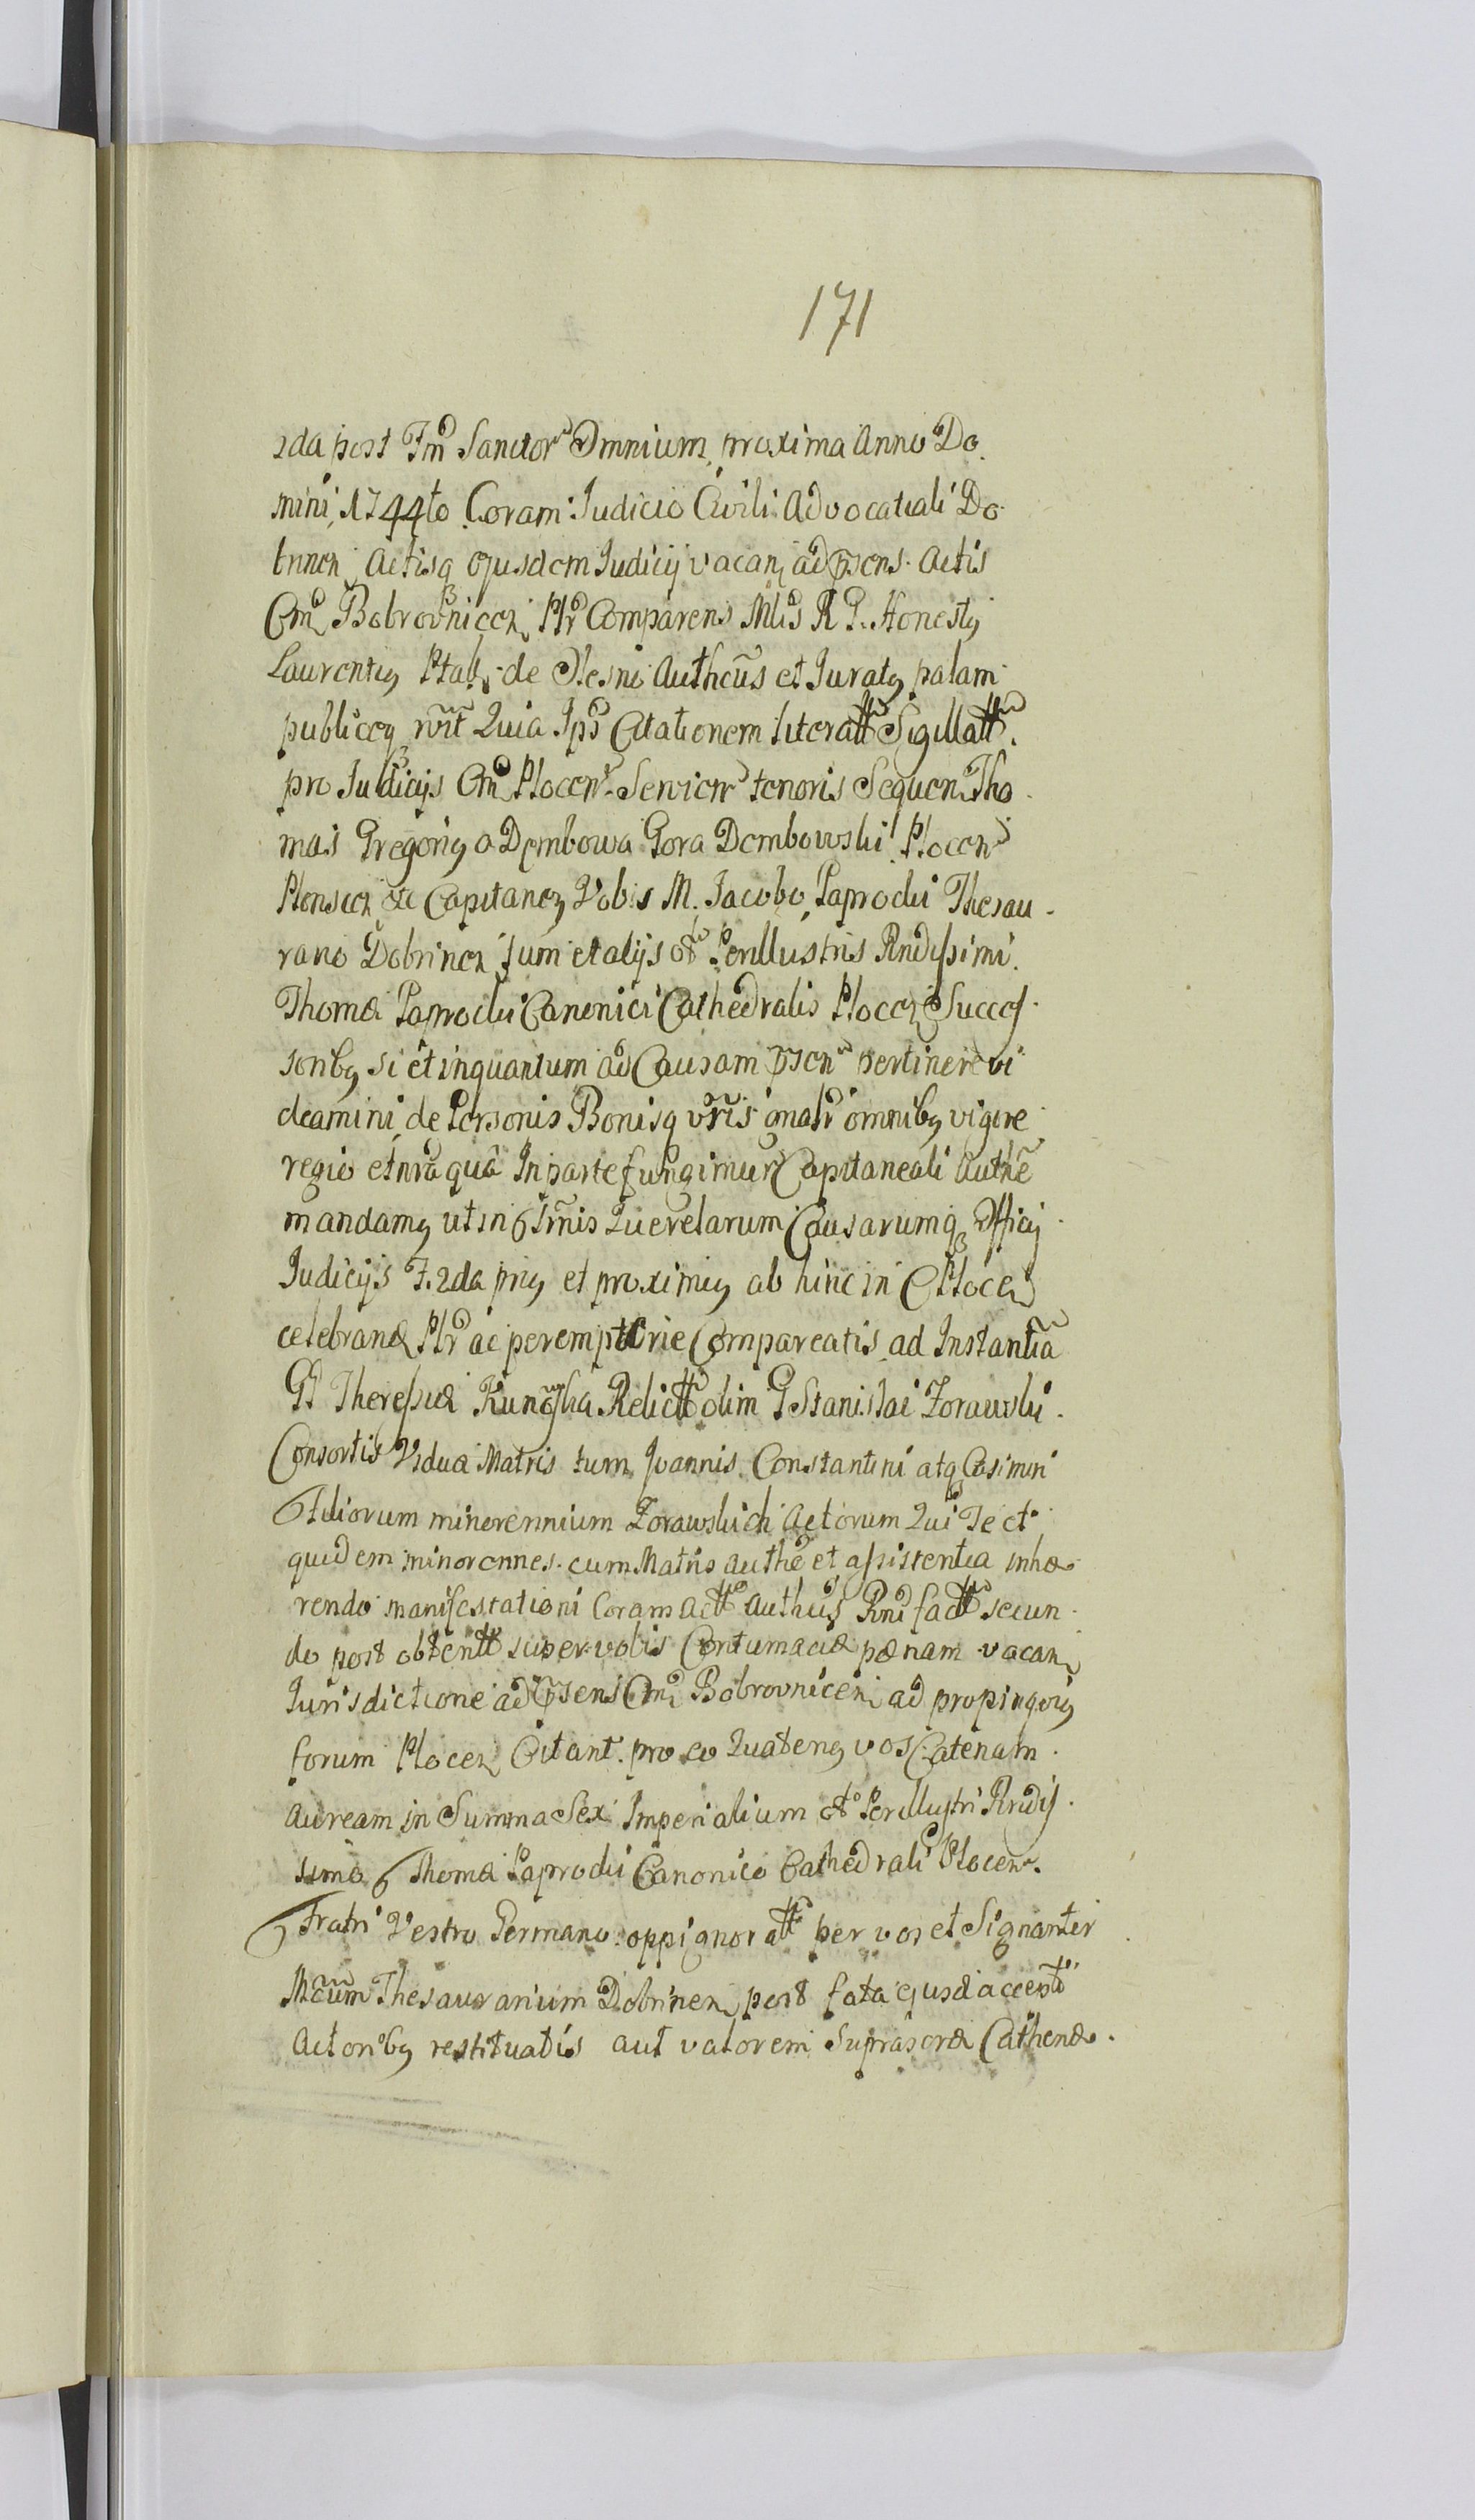 171
2da post Fm Sanctor Omnium proxima Anno Do
mini 1744to Coram Judicio Civili Advocatiali Do
brinen Actisq ejusdem Judicij vacan ad psens Actis
Bobrovnicen Plr Comparens Mlis R P. Honesty
Laurenty de Olesno Authcus et Juraty palam
publiceq Quia Ips Citationem literatt Sigillatt
pro Judicijs Plocen Servien tenoris Sequen Tho
mas Gregoriy a Dembowa Gora Dembowski Plocen
Plonscen &c Capitaney Vobis M. Jacobo Paprocki Thesau
rario Dobrinen tum et alijs Perillustris Rndissimi
Thomæ Paprocki Canonici Cathedralis Plocen Succes
soriby si et inquantum ad Causam psen pertinere vi
deamini de Personis Bonisq vris omniby vigore
regio et nra qua In parte fungimur Capitaneali Authe
mandamy ut in Querelarum Causarumq Officij
Judicijs F. 2da priy et proximiy ab hinc in Plocen
celebrand Plr ac peremptorie Compareatis ad Instantia
Gd Theressiæ Relictt olim G Stanislai Zorawski
Consortis Viduæ Matris tum Joannis Constantini atq Casimiri
Filiorum minorennium Zorawskich Actorum Qui Te et
quidem minorennes cum Matris authe et assistentia inhæ
rendo manifestationi Coram Actt Authcis factt secun
do post obtentt super vobis Contumaciæ pænam vacan
Jurisdictione ad psens Bobrovnicen ad propinquiy
forum Plocen Citant pro eo Quateny vos Catenam
auream in Summa Sex Imperialium Perillustri Rndis
simo Thomæ Paprocki Canonico Cathedrali Plocen
Fratri Vestro Germano oppignoratt per vos et Signanter
Mcum Thesaurarium Dobrinen post fata ejusd accent
Actoriby restituatis aut valorem suprascræ Cathenæ